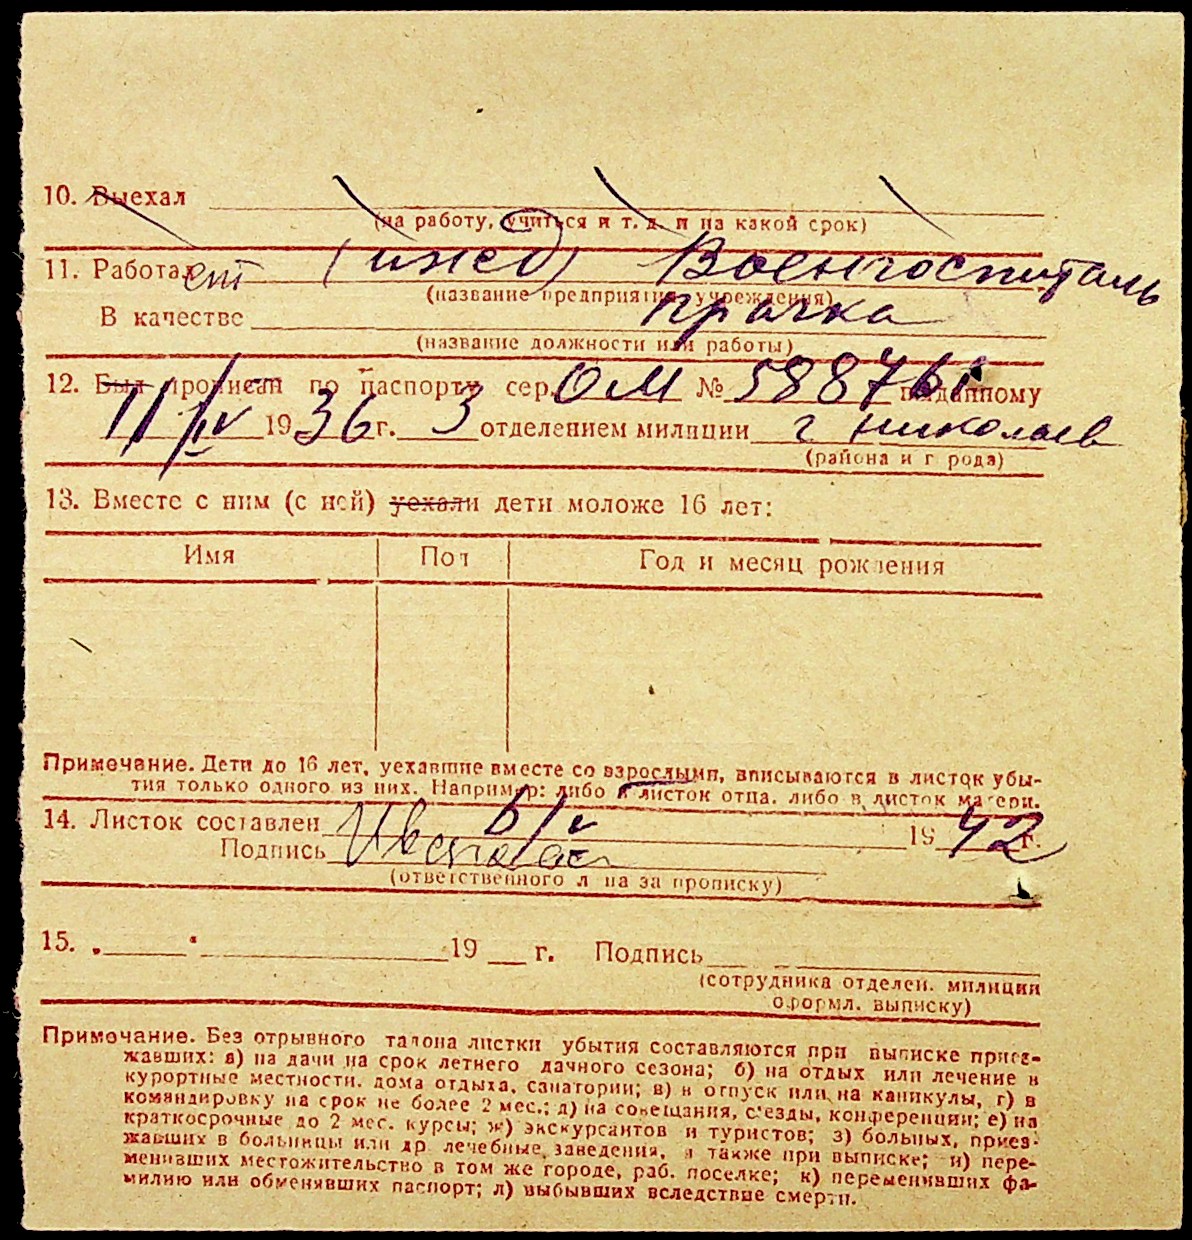 10. Выехал
(на работу, учиться и т. д. и на какой срок)
11. Работает Военгоспиталь
(название предприятия, учреждения)
В качестве прачка
(название должности или работы)
12. Был прописан по паспорту сер. ОМ № 588761 выданному
11/IV 1936 г. 3 отделением милиции г Николаев
(района и города)
13. Вместе с ним (с ней) уехали дети моложе 16 лет:
Имя Пол Год и месяц рождения
Примечание. Дети до 16 лет, уехавшие вместе со взрослыми, вписываются в листок убы-
тия только одного из них. Например: либо в листок отца, либо в листок матери.
14. Листок составлен 6/V 1942 г.
Подпись
(ответственного лица за прописку)
15. „ “ 19 г. Подпись
(сотрудника отделен. милиции
оформл. выписку)
Примечание. Без отрывного талона листки убытия составляются при выписке приез-
жавших: а) на дачи на срок летнего дачного сезона; б) на отдых или лечение в
курортные местности, дома отдыха, санатории; в) в отпуск или на каникулы, г) в
командировку на срок не более 2 мес.; д) на совещания, с'езды, конференции; е) на
краткосрочные до 2 мес. курсы; ж) экскурсантов и туристов; з) больных, приез-
жавших в больницы или др. лечебные заведения, а также при выписке; и) пере-
менивших местожительство в том же городе, раб. поселке; к) переменивших фа-
милию или обменявших паспорт; л) выбывших вследствие смерти.